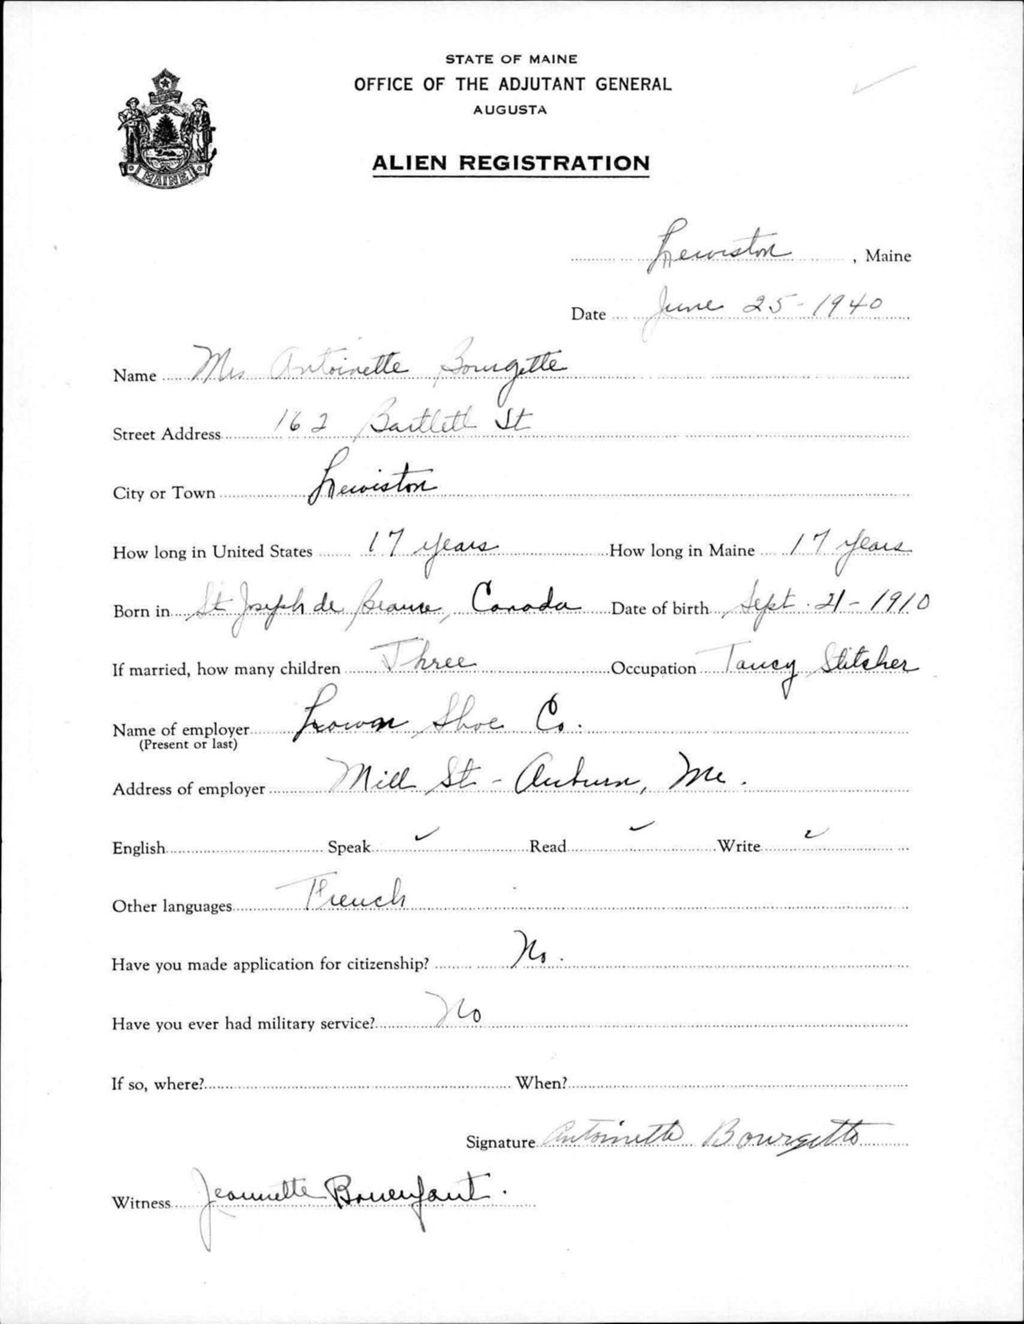 STATE OF MAINE
OFFICE OF THE ADJUTANT GENERAL
AUGUSTA
ALIEN REGISTRATION
MAINE
Lewiston, Maine
Date June 25-1940
Name Mrs Antoinette Bourgette
Street Address 162 Bartlett St
City or Town Lewiston
How long in United States 17 years How long in Maine 17 years
Born in St Joseph de Beauce, Canada Date of birth Sept. 21-1910
If married, how many children Three Occupation Fancy Stitcher
Name of employer Shoe Co.
(Present or last)
Address of employer Mill St - Auburn, Me.
English Speak ✓ Read ✓ Write ✓
Other languages French
Have you made application for citizenship? No.
Have you ever had military service? No
If so, where? When?
Signature Antoinette Bourgette
Witness Jeannette Bonenfant.